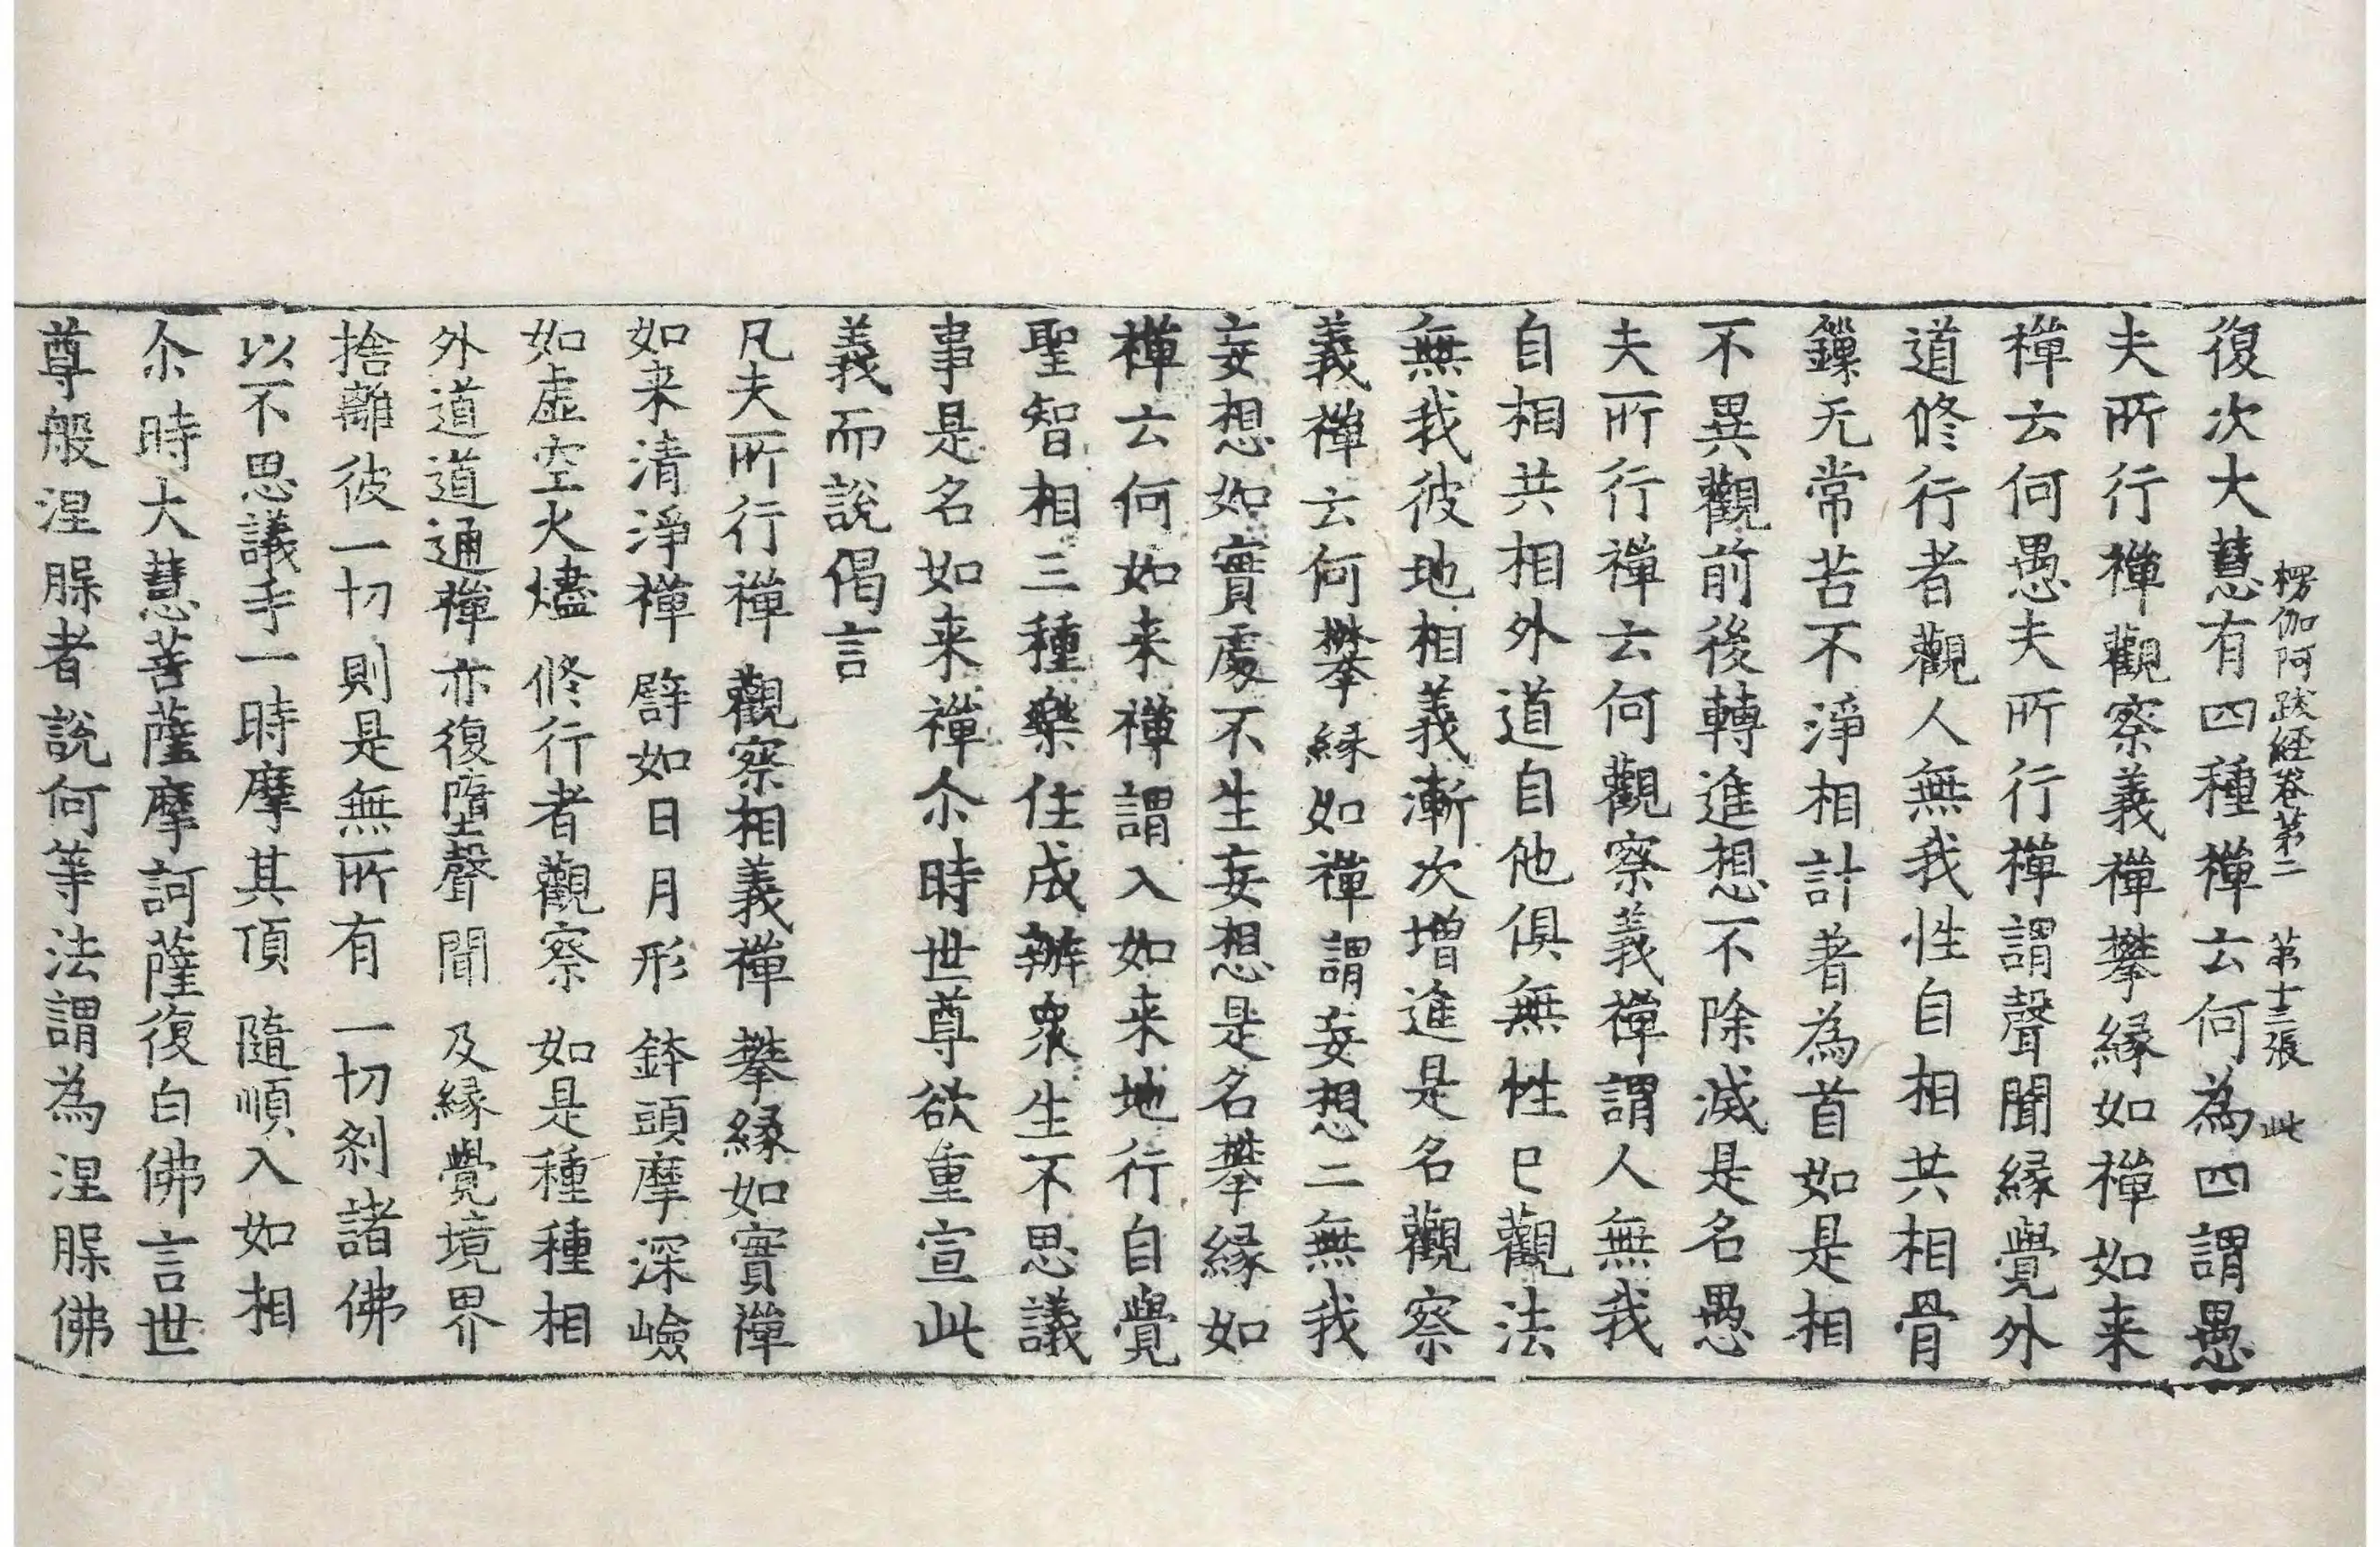 楞伽阿跋經卷第二 第十三張 此
復次大慧有四種禪云何為四謂愚
夫所行禪觀察義禪攀緣如禪如来
禪云何愚夫所行禪謂聲聞緣覺外
道修行者觀人無我性自相共相骨
鏁无常苦不淨相計著為首如是相
不異觀前後轉進想不除滅是名愚
夫所行禪云何觀察義禪謂人無我
自相共相外道自他俱無性已觀法
無我彼地相義漸次增進是名觀察
義禪云何攀緣如禪謂妄想二無我
妄想如實處不生妄想是名攀緣如
禪云何如来禪謂入如来地行自覺
聖智相三種樂住成辦衆生不思議
事是名如来禪尒時世尊欲重宣此
義而說偈言
凡夫所行禪 觀察相義禪 攀緣如實禪
如来清淨禪 譬如日月形 鉢頭摩深嶮
如虛空火燼 修行者觀察 如是種種相
外道道通禪 亦復墮聲聞 及緣覺境界
捨離彼一切 則是無所有 一切剎諸佛
以不思議手 一時摩其頂 隨順入如相
尒時大慧菩薩摩訶薩復白佛言世
尊般涅槃者說何等法謂為涅槃佛